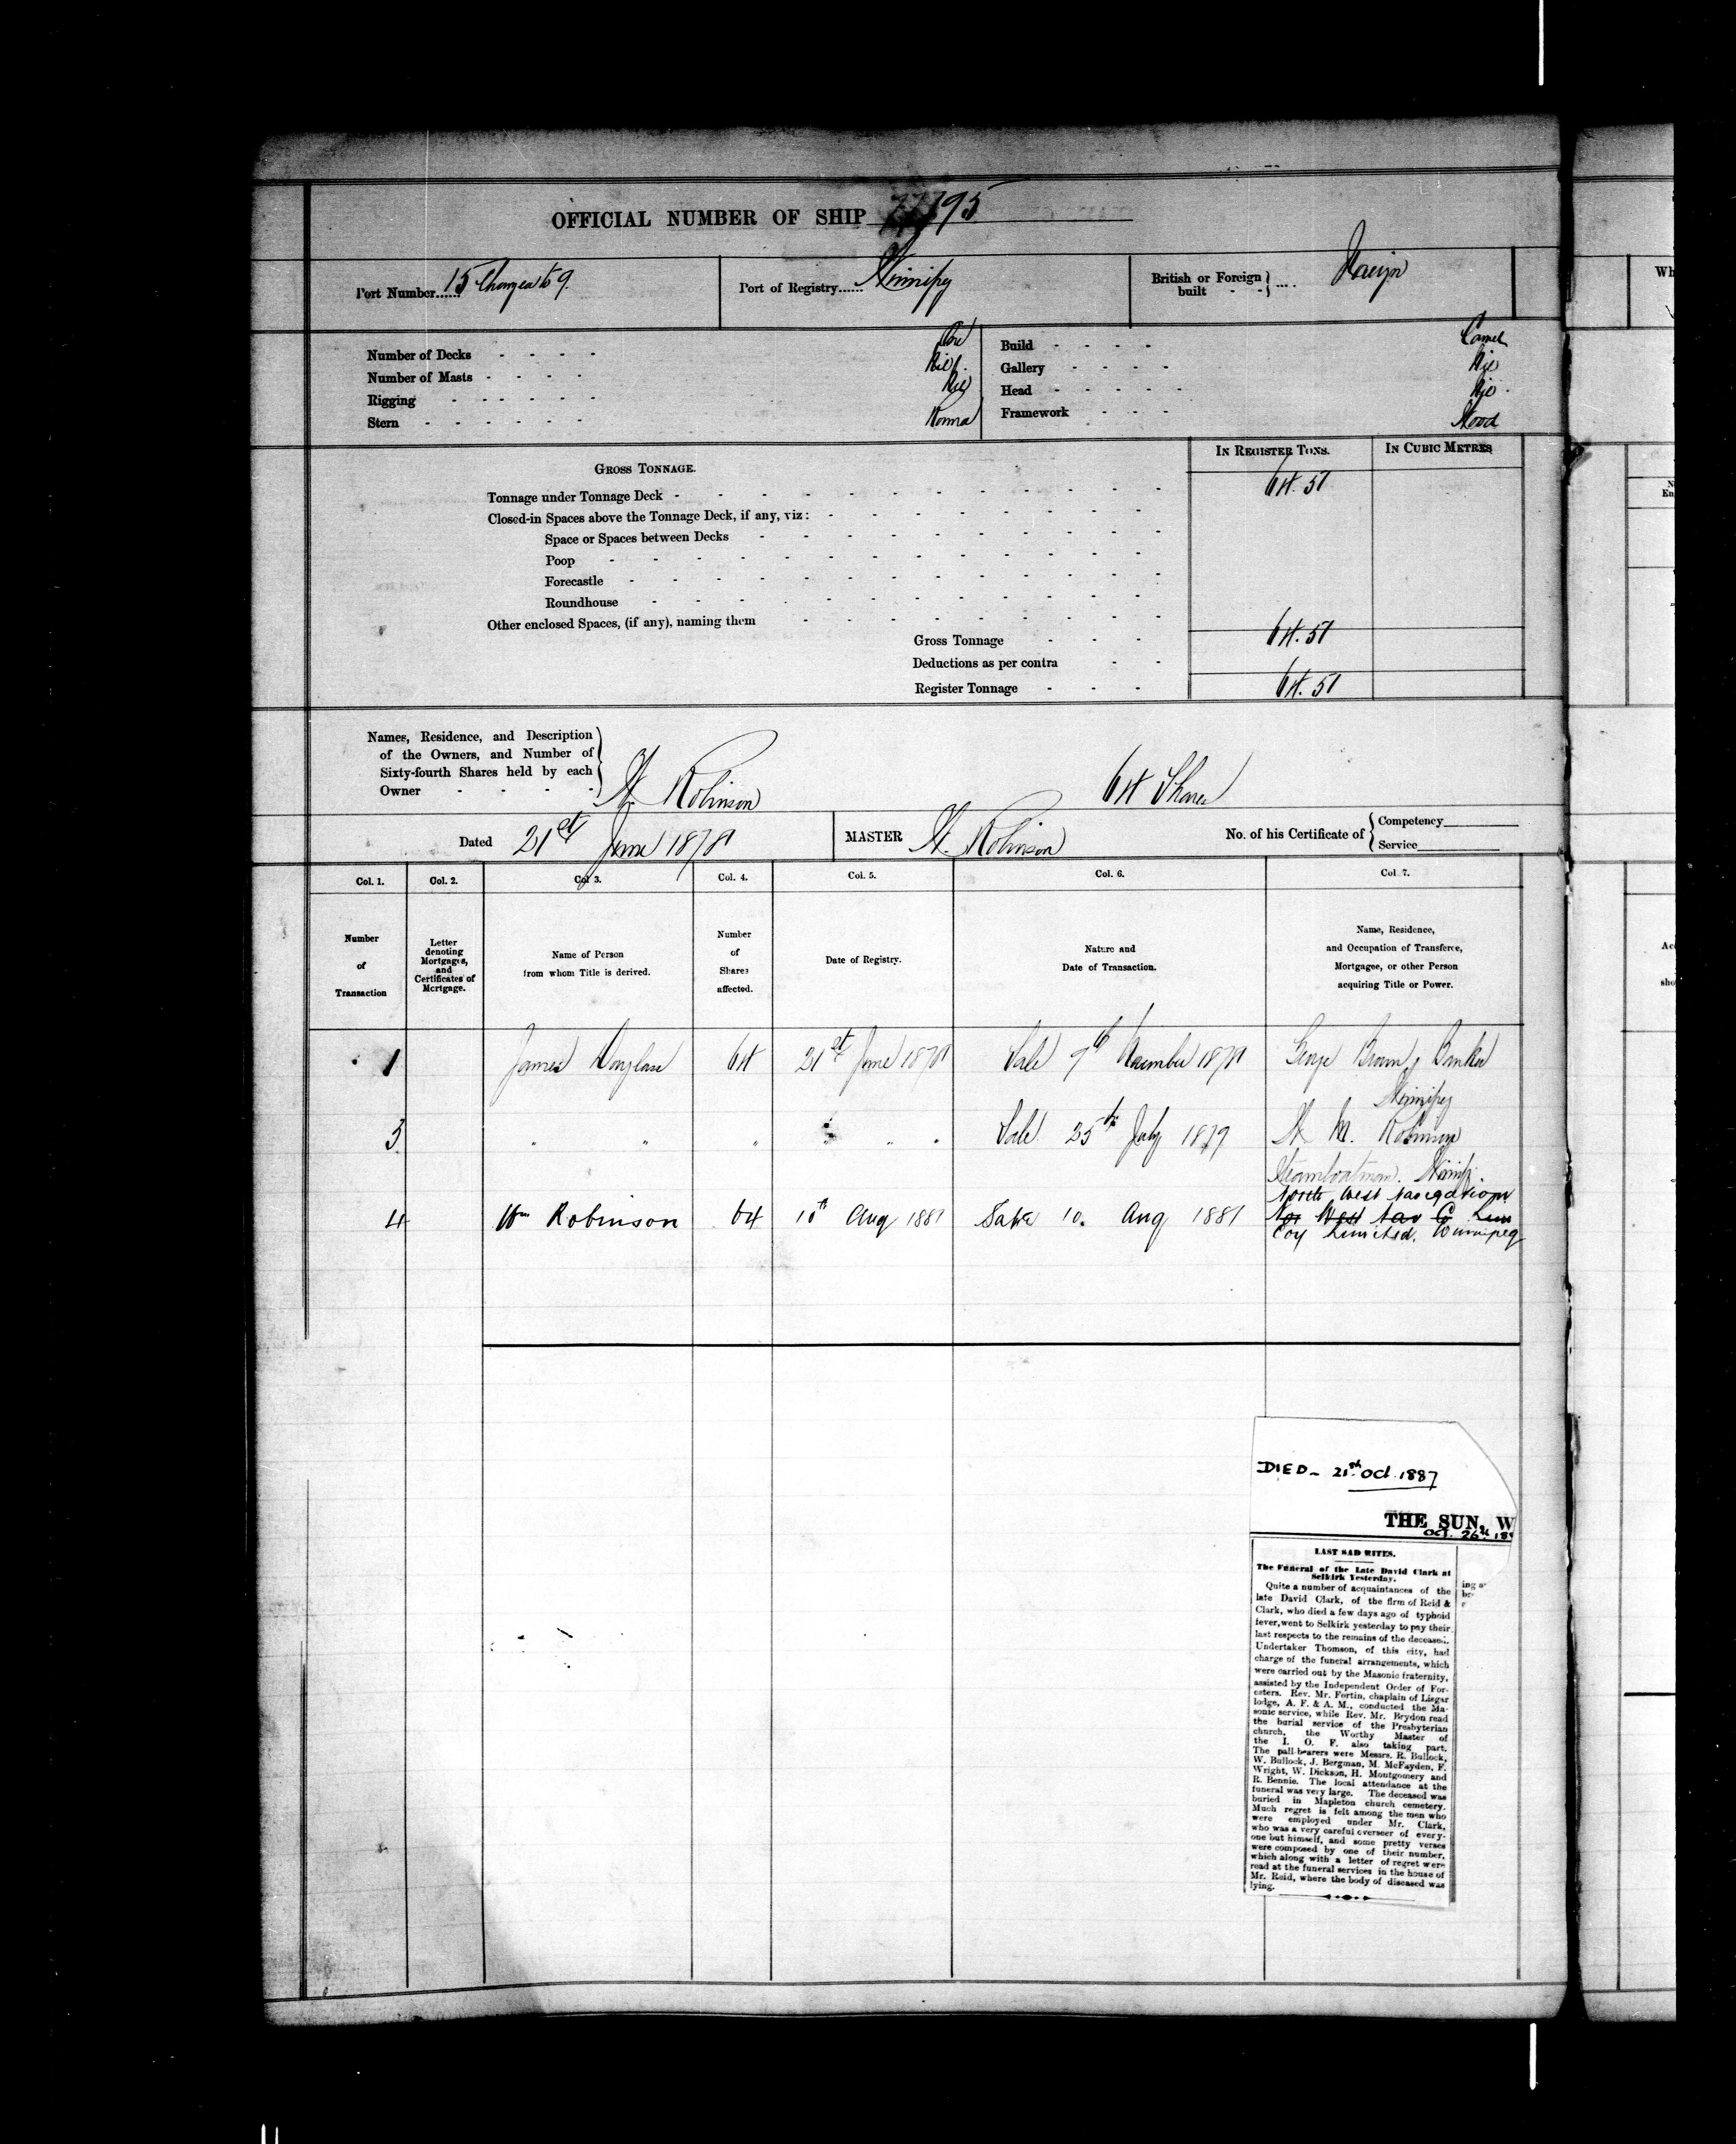 OFFICIAL NUMBER OF SHIP 195
Port Number...... 15 Changed to 9.
Port of Registry...... Winnipeg
British or Foreign built - - .... Foreign
Number of Decks - - - - One
Number of Masts - - - - Nil
Rigging - - - - - - Nil
Stern - - - - - - Round
Build - - - - Carvel
Gallery - - - - Nil
Head - - - - - Nil
Framework - - - Wood
IN REGISTER TONS.
IN CUBIC METRES
GROSS TONNAGE.
Tonnage under Tonnage Deck - 64.51
Closed-in Spaces above the Tonnage Deck, if any, viz:
Space or Spaces between Decks
Poop
Forecastle
Roundhouse
Other enclosed Spaces, (if any), naming them
Gross Tonnage - - - 64.51
Deductions as per contra - -
Register Tonnage - - - 64.51
Names, Residence, and Description
of the Owners, and Number of
Sixty-fourth Shares held by each
Owner - - - - W. Robinson 64 Shares
Dated 21st June 1878
MASTER W. Robinson
No. of his Certificate of
Competency
Service
Col. 1.
Col. 2.
Col. 3.
Col. 4.
Col. 5.
Col. 6.
Col. 7.
Number
of
Transaction
Letter
denoting
Mortgages,
and
Certificates of
Mortgage.
Name of Person
from whom Title is derived.
Number
of
Shares
affected.
Date of Registry.
Nature and
Date of Transaction.
Name, Residence,
and Occupation of Transferee,
Mortgagee, or other Person
acquiring Title or Power.
1 James Douglass 64 21st June 1878 Sale 9th November 1878 George Brown, Banker
Winnipeg
3 " " " " " " Sale 25th July 1879 W M. Robinson
Steamboatman. Winnip.
North West Navigation
4 Wm Robinson 64 10th Aug 1881 Sale 10. Aug 1881 Nor West Nav Co Lim
Coy Limited. Winnipeg
DIED - 21st Oct. 1887
THE SUN, W
Oct. 26th
LAST SAD RITES.
The Funeral of the Late David Clark at
Selkirk Yesterday.
Quite a number of acquaintances of the
late David Clark, of the firm of Reid &
Clark, who died a few days ago of typhoid
fever, went to Selkirk yesterday to pay their
last respects to the remains of the deceased.
Undertaker Thomson, of this city, had
charge of the funeral arrangements, which
were carried out by the Masonic fraternity,
assisted by the Independent Order of For-
esters. Rev. Mr. Fortin, chaplain of Lisgar
lodge, A. F. & A. M., conducted the Ma-
sonic service, while Rev. Mr. Brydon read
the burial service of the Presbyterian
church, the Worthy Master of
the I. O. F. also taking part.
The pall-bearers were Messrs. R. Bullock,
W. Bullock, J. Bergman, M. McFayden, F.
Wright, W. Dickson, H. Montgomery and
R. Bennie. The local attendance at the
funeral was very large. The deceased was
buried in Mapleton church cemetery.
Much regret is felt among the men who
were employed under Mr. Clark,
who was a very careful overseer of every-
one but himself, and some pretty verses
were composed by one of their number,
which along with a letter of regret were
read at the funeral services in the house of
Mr. Reid, where the body of diseased was
lying.